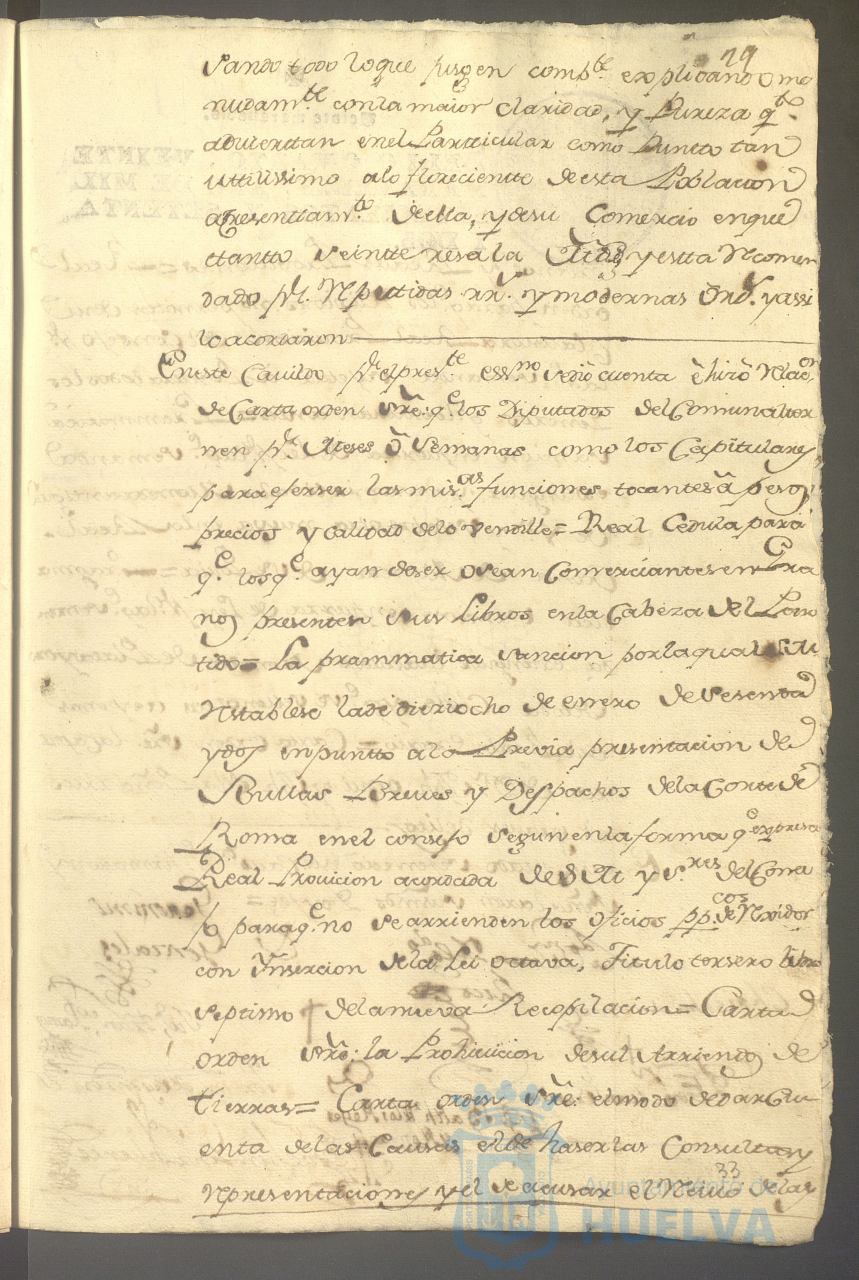 29
sando todo loque jusgen comb.te explicando me
nudam.te con la maior claridad, y Pureza q.e
aduierttan enel Partticular como Puntto tan
Uttilissimo alo floreciente de esta Poblacion
apresenttam.te de ella, y desu Comercio enque
ttanto seintteresa la y estta Recomen
dado p.r Repetidas rr.s y modernas Ord.s y assi
lo acordaron
En este Cauildo p.r el pres.te ess.no sedio cuenta è hizo Relac.on
de Carta orden sre: q.e los Diputados del Comun alter
nen p.r Meses ò Semanas como los Capitulares
para eserser las mis.as funciones tocantes à peso,
precios y calidad delo vendille = Real Cedula para
q.e los q.e ayan de ser o sean Comerciantes en Gra
nos presenten sus Libros en la Cabeza del Par
tido = La prammatica sancion por la qual S.M.
Restablese la de dieziocho de enero de sesenta
y dos en puntto a la Previa presentacion de
Bullas Breues y Despachos de la Corte de
Roma enel consejo segun en la forma q.e expresa
Real Prouicion acordada de S M y S.res del Conse
jo para q.e no se arrienden los oficios pp.cos de Rexidor
con Insercion de la Lei octava, Titulo tersero libro
septimo de la nueva Recopilacion = Carta
orden sre: la Prohiuicion desul Arriendo de
tierras = Carta orden sre: el modo de dar Cu
enta de las Causas el de haser las Consultas y
Representaciones y el de acusar el Reciuo de las
33
Ayuntamiento de
HUELVA